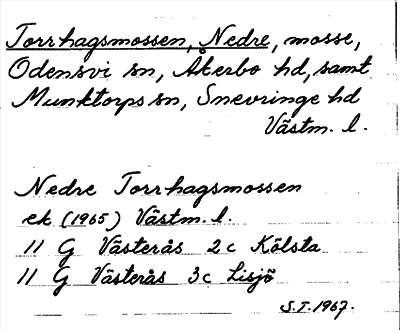 Torrhagsmossen, Nedre, mosse,
Odensvi sn, Åkerbo hd, samt
Munktorps sn, Snevringe hd
Västm. l.
Nedre Torrhagsmossen
ek (1965) Västm. l.
11 G Västerås 2c Kölsta
11 G Västerås 3c Lisjö
S.T. 1967.